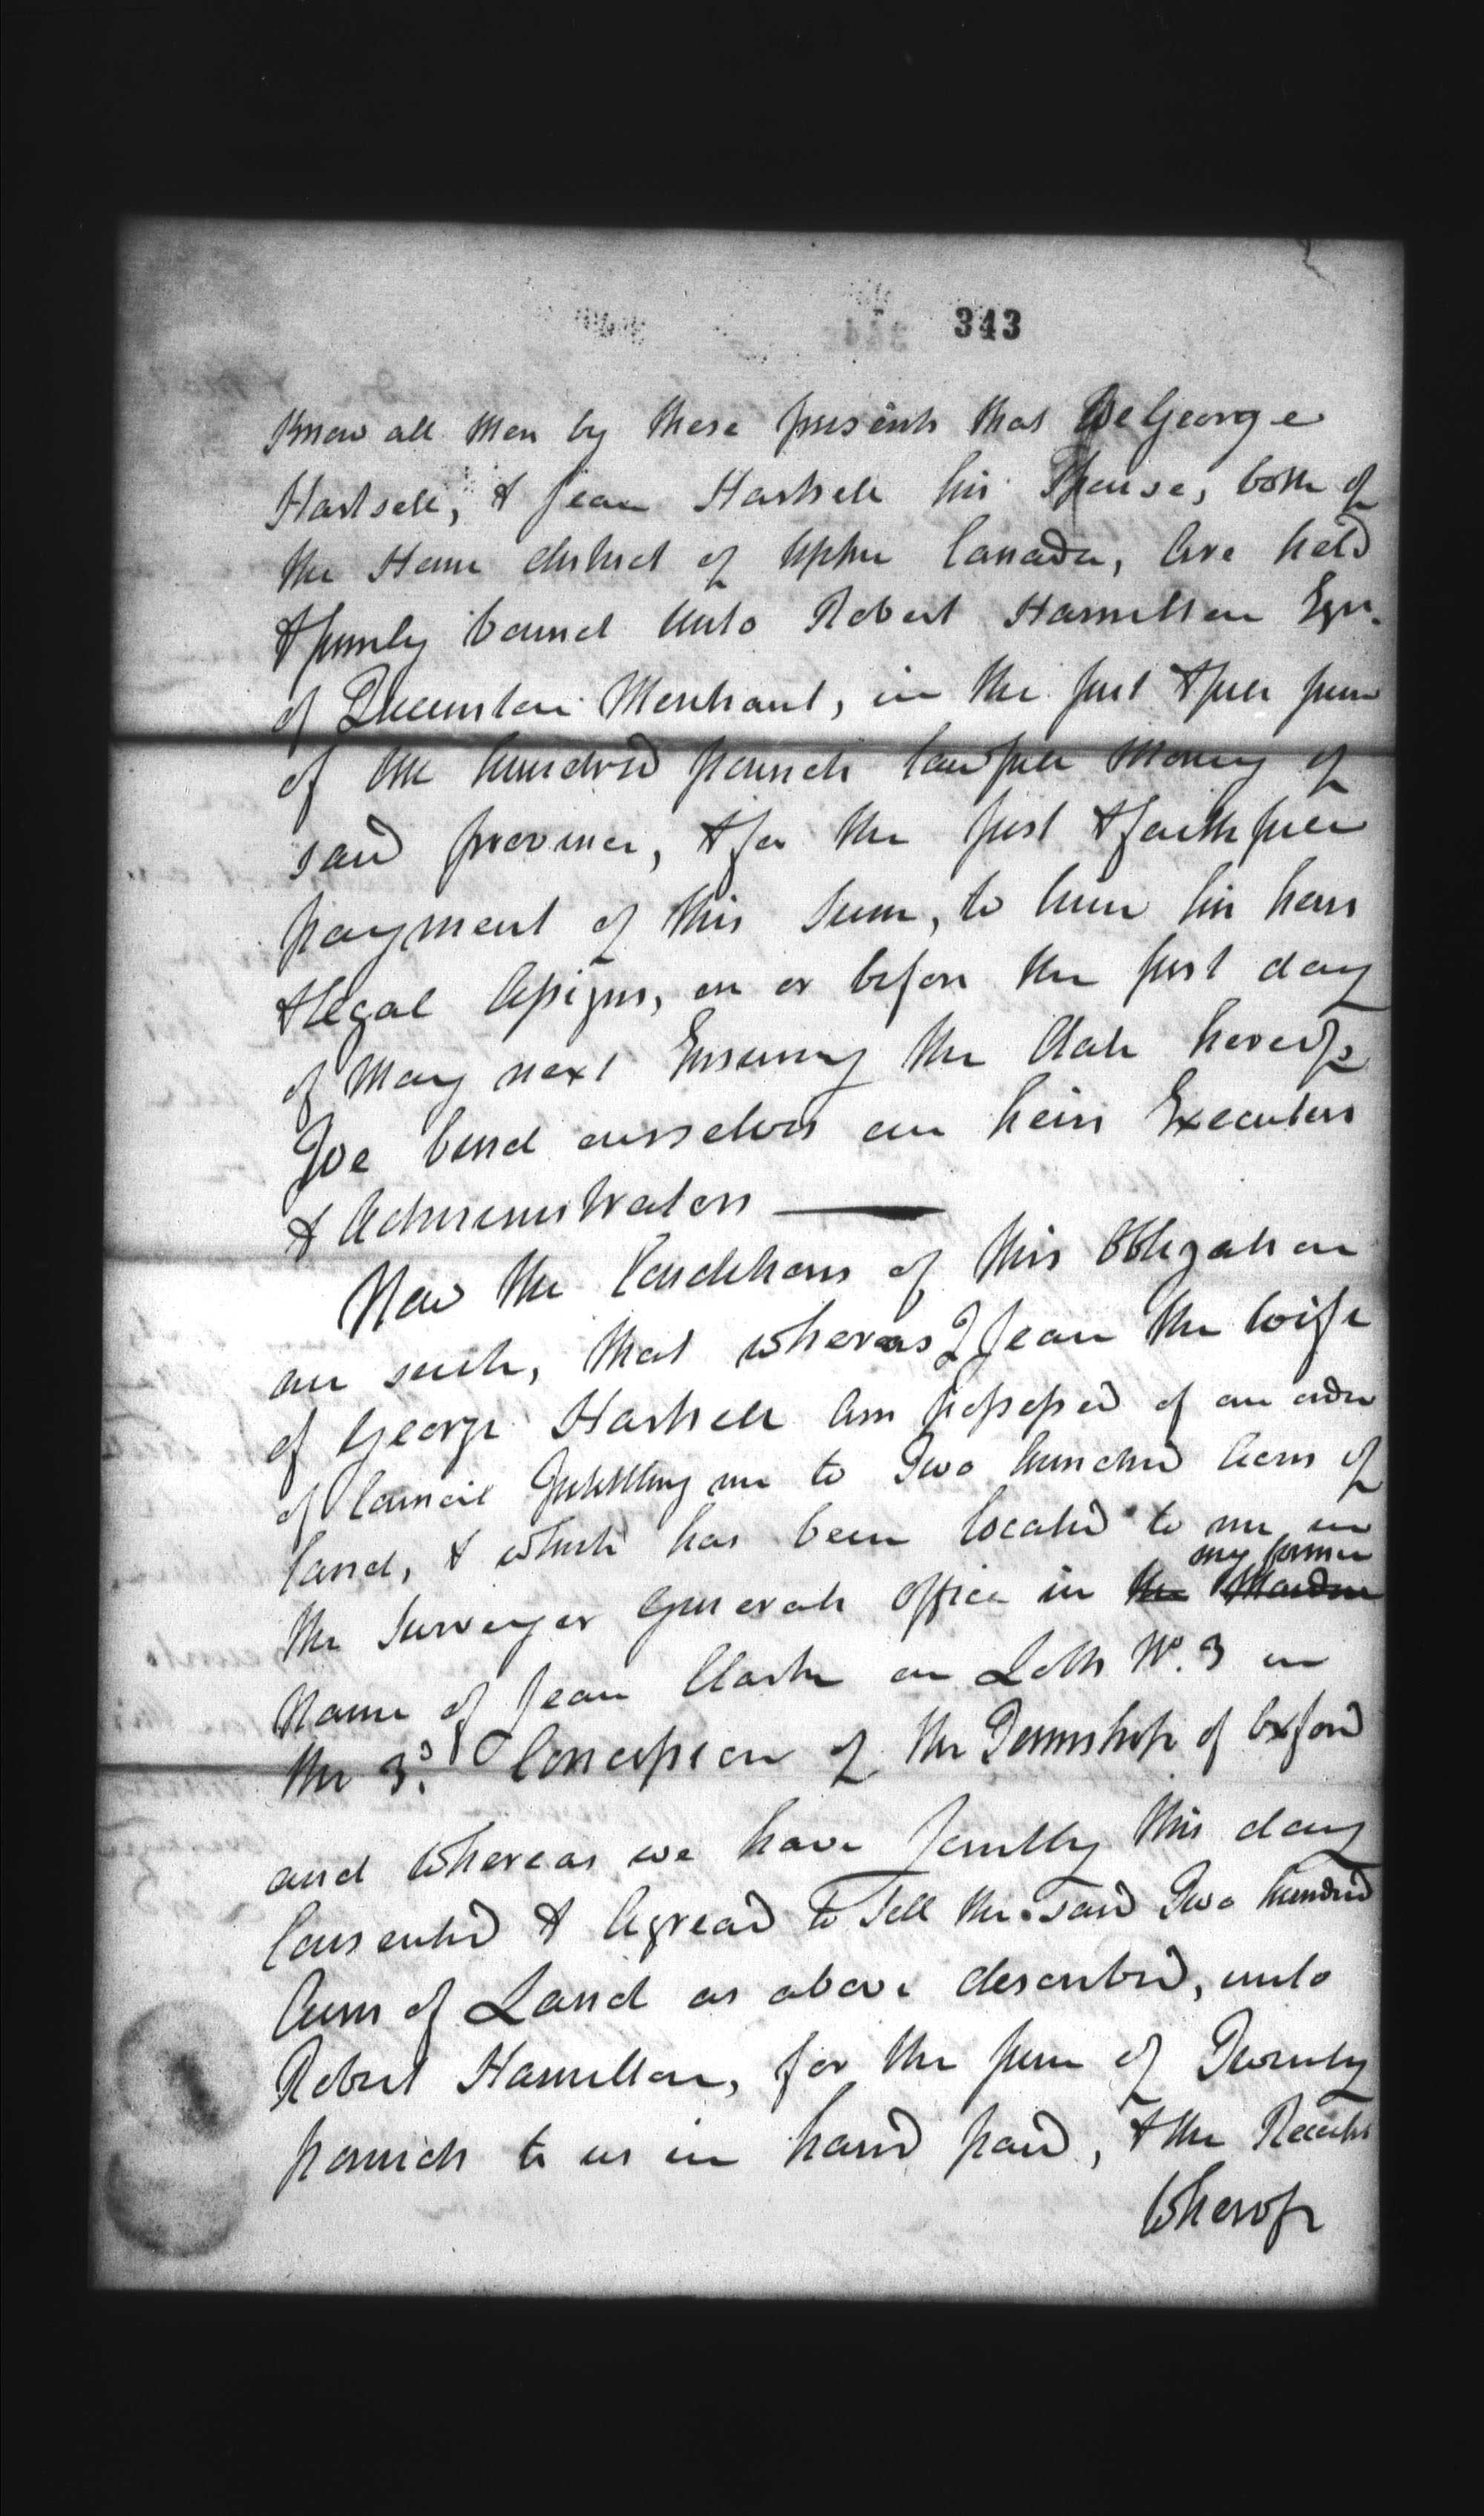 343
Know all Men by these presents that We George
Hartsell, & Jean Hartsell his Spouse, both of
the Home district of Upper Canada, Are held
& firmly bound Unto Robert Hamilton Esqr.
of Queenston Merchant, in the just & full sum
of One hundred pounds lawfull Money of
said province, & for the just & faithfull
payment of this Sum, to him his heirs
& legal Assigns, on or before the first day
of May next Ensuing the date hereof,
We bind ourselves our heirs Executors
& Administrators
Now the Conditions of this Obligation
are such, that whereas I Jean the Wife
of George Hartsell Am possessed of an order
of Council Intittling me to Two hundred Acres of
land, & which has been located to me in
the Surveyor Generals Office in the Maiden my former
Name of Jean Clarke on Lotts No. 3 in
the 3d. Concession of the Township of Oxford
and Whereas we have Jointly this day
Consented & Agreed to Sell the said Two hundred
Acres of Land as above described, unto
Robert Hamilton, for the sum of Twenty
pounds to us in hand paid, & the Receipt
Whereof